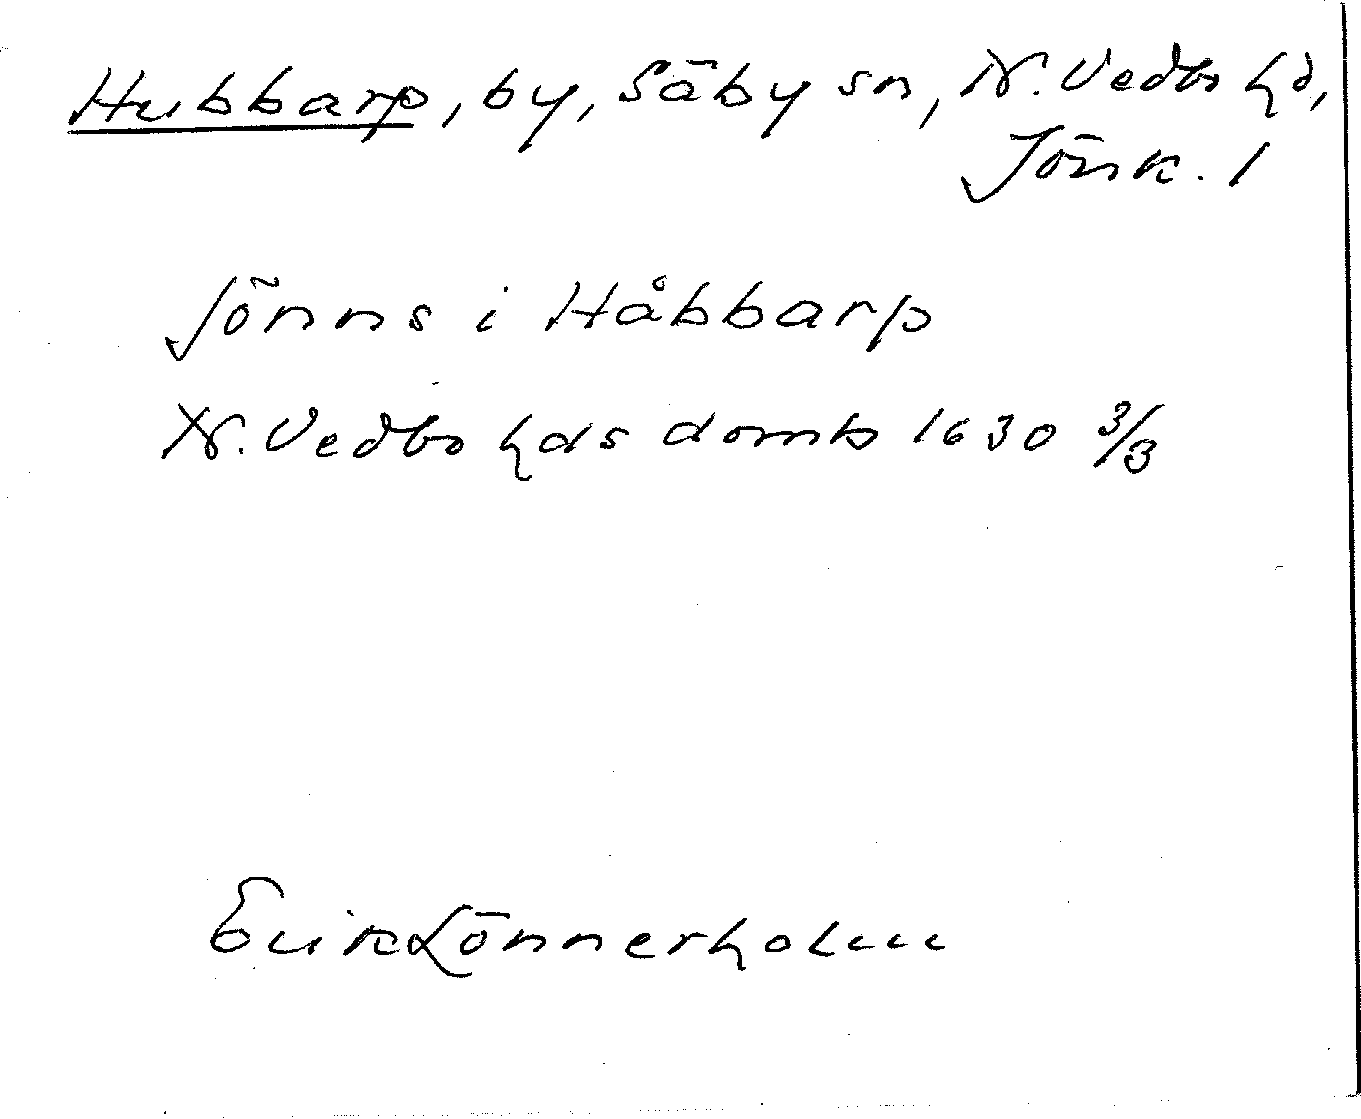 Hubbarp, by, Säby sn, N. Vedbo hd,
Jönk. l
Jönns i Håbbarp
N. Vedbo hds domb 1630 3/3
Erik Lönnerholm